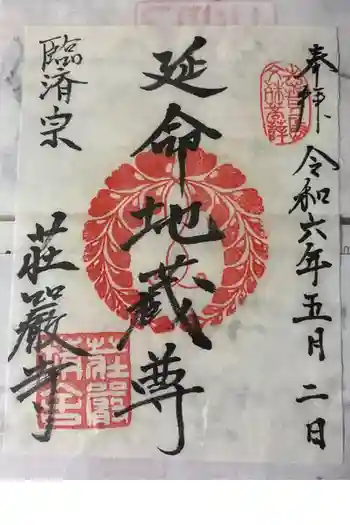 奉拝
令和六年五月二日
延命地蔵尊
臨済宗
荘嚴寺